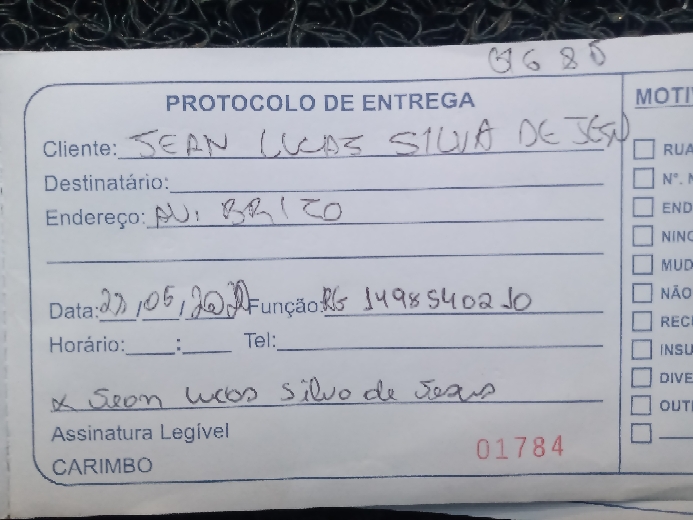 PROTOCOLO DE ENTREGA
Cliente: JEAN LUCAS SILVA DE JESU
Destinatário:
Endereço: AV: BRIZO
Data: /05, Função: RG 1498540210
Horário: : Tel:
x Jean Lucas Silva de Jesus
Assinatura Legível
01784
CARIMBO
MOTI
RUA
Nº. N
END
NINC
MUD
NÃO
RECU
INSU
DIVE
OUT